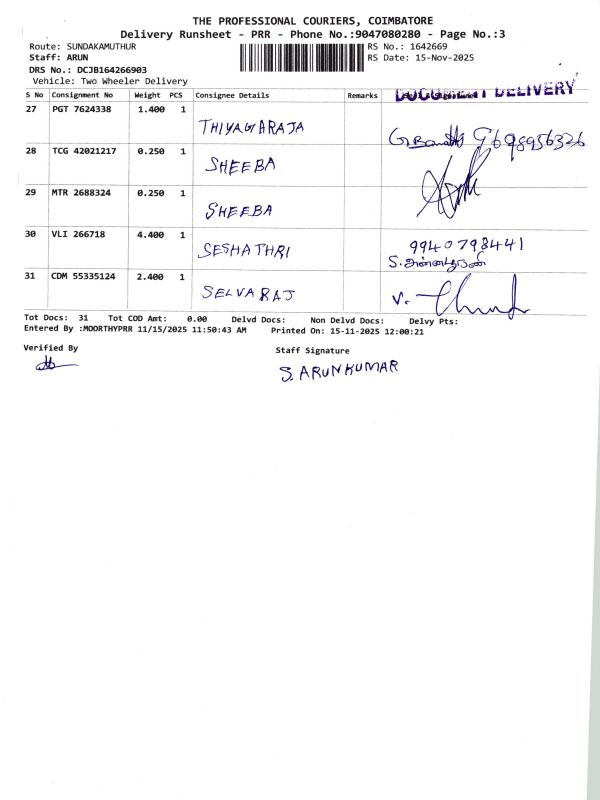 THE PROFESSIONAL COURIERS, COIMBATORE
Delivery Runsheet - PRR - Phone No.:9047080280 - Page No.:3
Route: SUNDAKAMUTHUR RS No.: 1642669
Staff: ARUN RS Date: 15-Nov-2025
DRS No.: DCJB164266903
Vehicle: Two Wheeler Delivery
DOCUMENT DELIVERY
S No Consignment No Weight PCS Consignee Details Remarks
27 PGT 7624338 1.400 1 THIYAGARAJA
28 TCG 42021217 0.250 1 SHEEBA
29 MTR 2688324 0.250 1 SHEEBA
30 VLI 266718 4.400 1 SESHATHRI 9940798441
31 CDM 55335124 2.400 1 SELVARAJ V.
Tot Docs: 31 Tot COD Amt: 0.00 Delvd Docs: Non Delvd Docs: Delvy Pts:
Entered By :MOORTHYPRR 11/15/2025 11:50:43 AM Printed On: 15-11-2025 12:00:21
Verified By Staff Signature
S. ARUNKUMAR